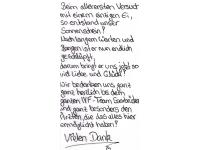 Beim allerersten Versuch
mit einem einzigen Ei,
so entstand unser
Sonnenschein!
Nach langem Warten und
Bangen ist er nun endlich
geschlüpft,
darum bringt er uns jetzt so
viel Liebe und Glück!
Wir bedanken uns ganz
ganz herzlich bei dem
ganzen IVF-Team Saarbrücken
und ganz besonders den
Ärzten, die das alles hier
ermöglicht haben!
Vielen Dank